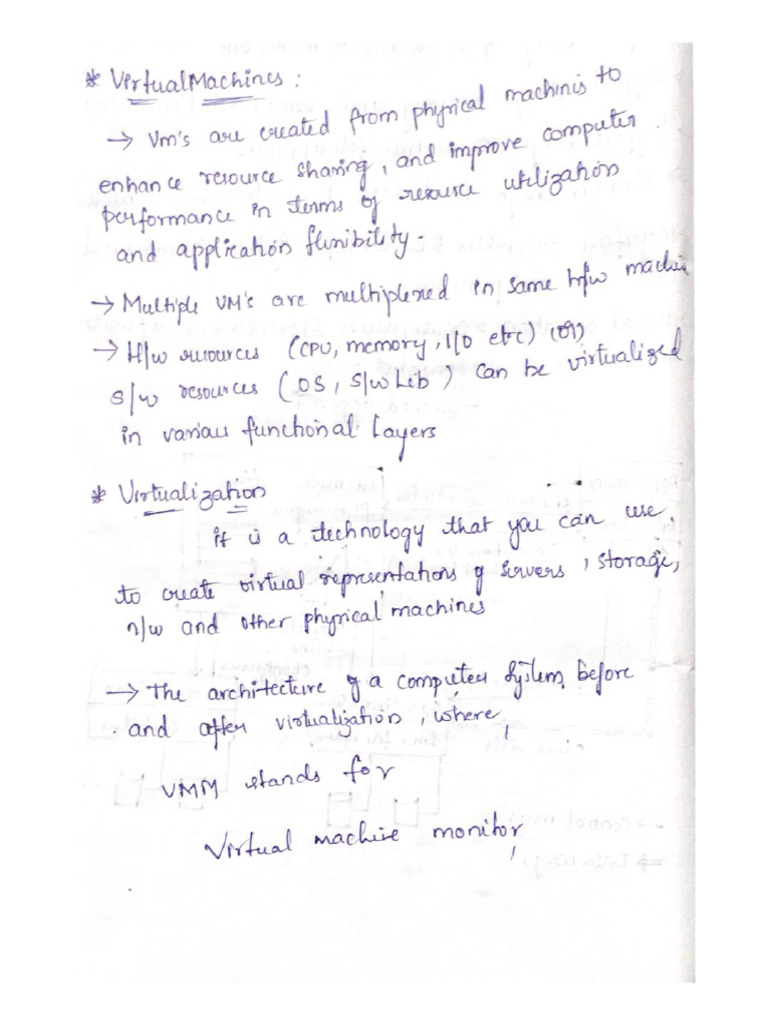 * Virtual Machines :
→ Vm's are created from physical machines to
enhance resource sharing, and improve computer
performance in terms of resource utilization
and application flexibility.
→ Multiple VM's are multiplexed in same h/w machine
→ H/w resources (CPU, memory, I/O etc) (or)
S/w resources (OS, S/w Lib) can be virtualized
in various functional Layers
* Virtualization
it is a technology that you can use
to create virtual representations of servers, storage,
n/w and other physical machines
→ The architecture of a computer system before
and after virtualization, where,
VMM stands for
Virtual machine monitor,